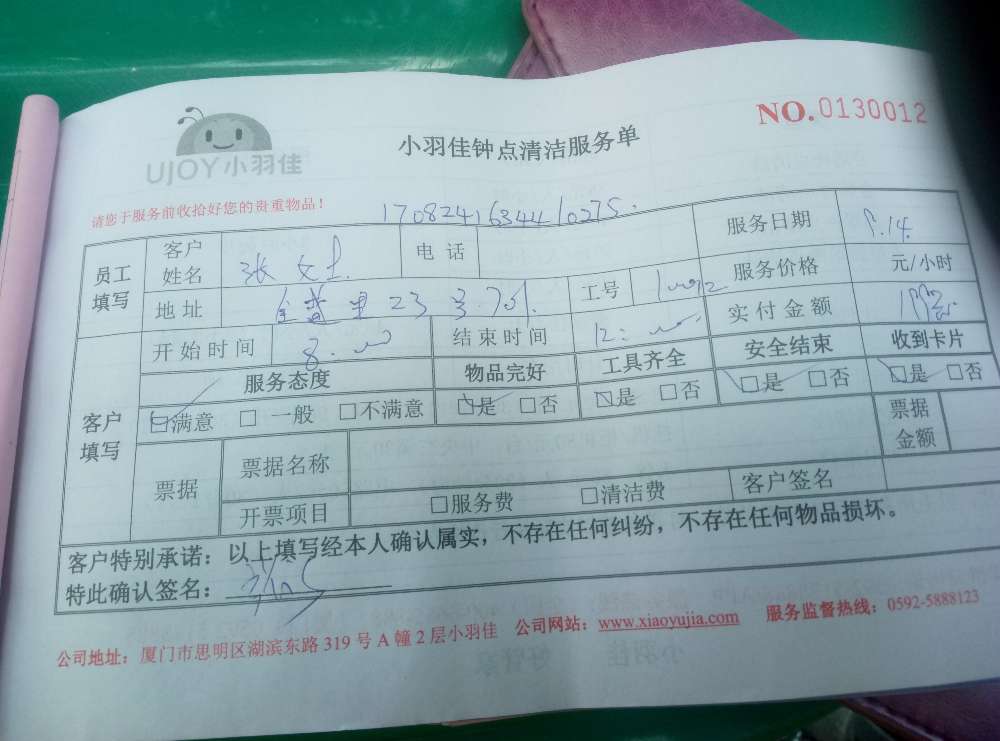 NO.0130012
UJOY小羽佳
小羽佳钟点清洁服务单
请您于服务前收拾好您的贵重物品！
1708241634410275.
员工填写 客户姓名 张女士 电话 服务日期 9.14
地址 里23 701 工号 服务价格 元/小时
实付金额
客户填写 开始时间 8: 结束时间 12:
服务态度 物品完好 工具齐全 安全结束 收到卡片
☑满意 □一般 □不满意 ☑是 □否 ☑是 □否 ☑是 □否 ☑是 □否
票据 票据名称 票据金额
开票项目 □服务费 □清洁费 客户签名
客户特别承诺：以上填写经本人确认属实，不存在任何纠纷，不存在任何物品损坏。
特此确认签名：
公司地址：厦门市思明区湖滨东路319号A幢2层小羽佳 公司网站：www.xiaoyujia.com 服务监督热线：0592-5888123